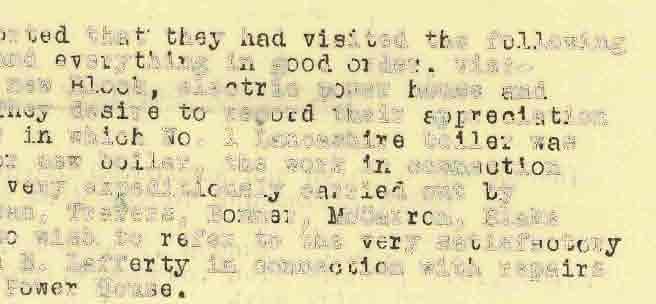 orted that they had visited the following
and everything in good order. Viz:-
new Block, electric power house and
They desire to record their appreciation
in which No. 1 Lancashire boiler was
or new boiler, the work in connection
very expeditiously carried out by
Travers, Bonner, McCarron, Blake
to wish to refer to the very satisfactory
N. Lafferty in connection with repairs
Power House.